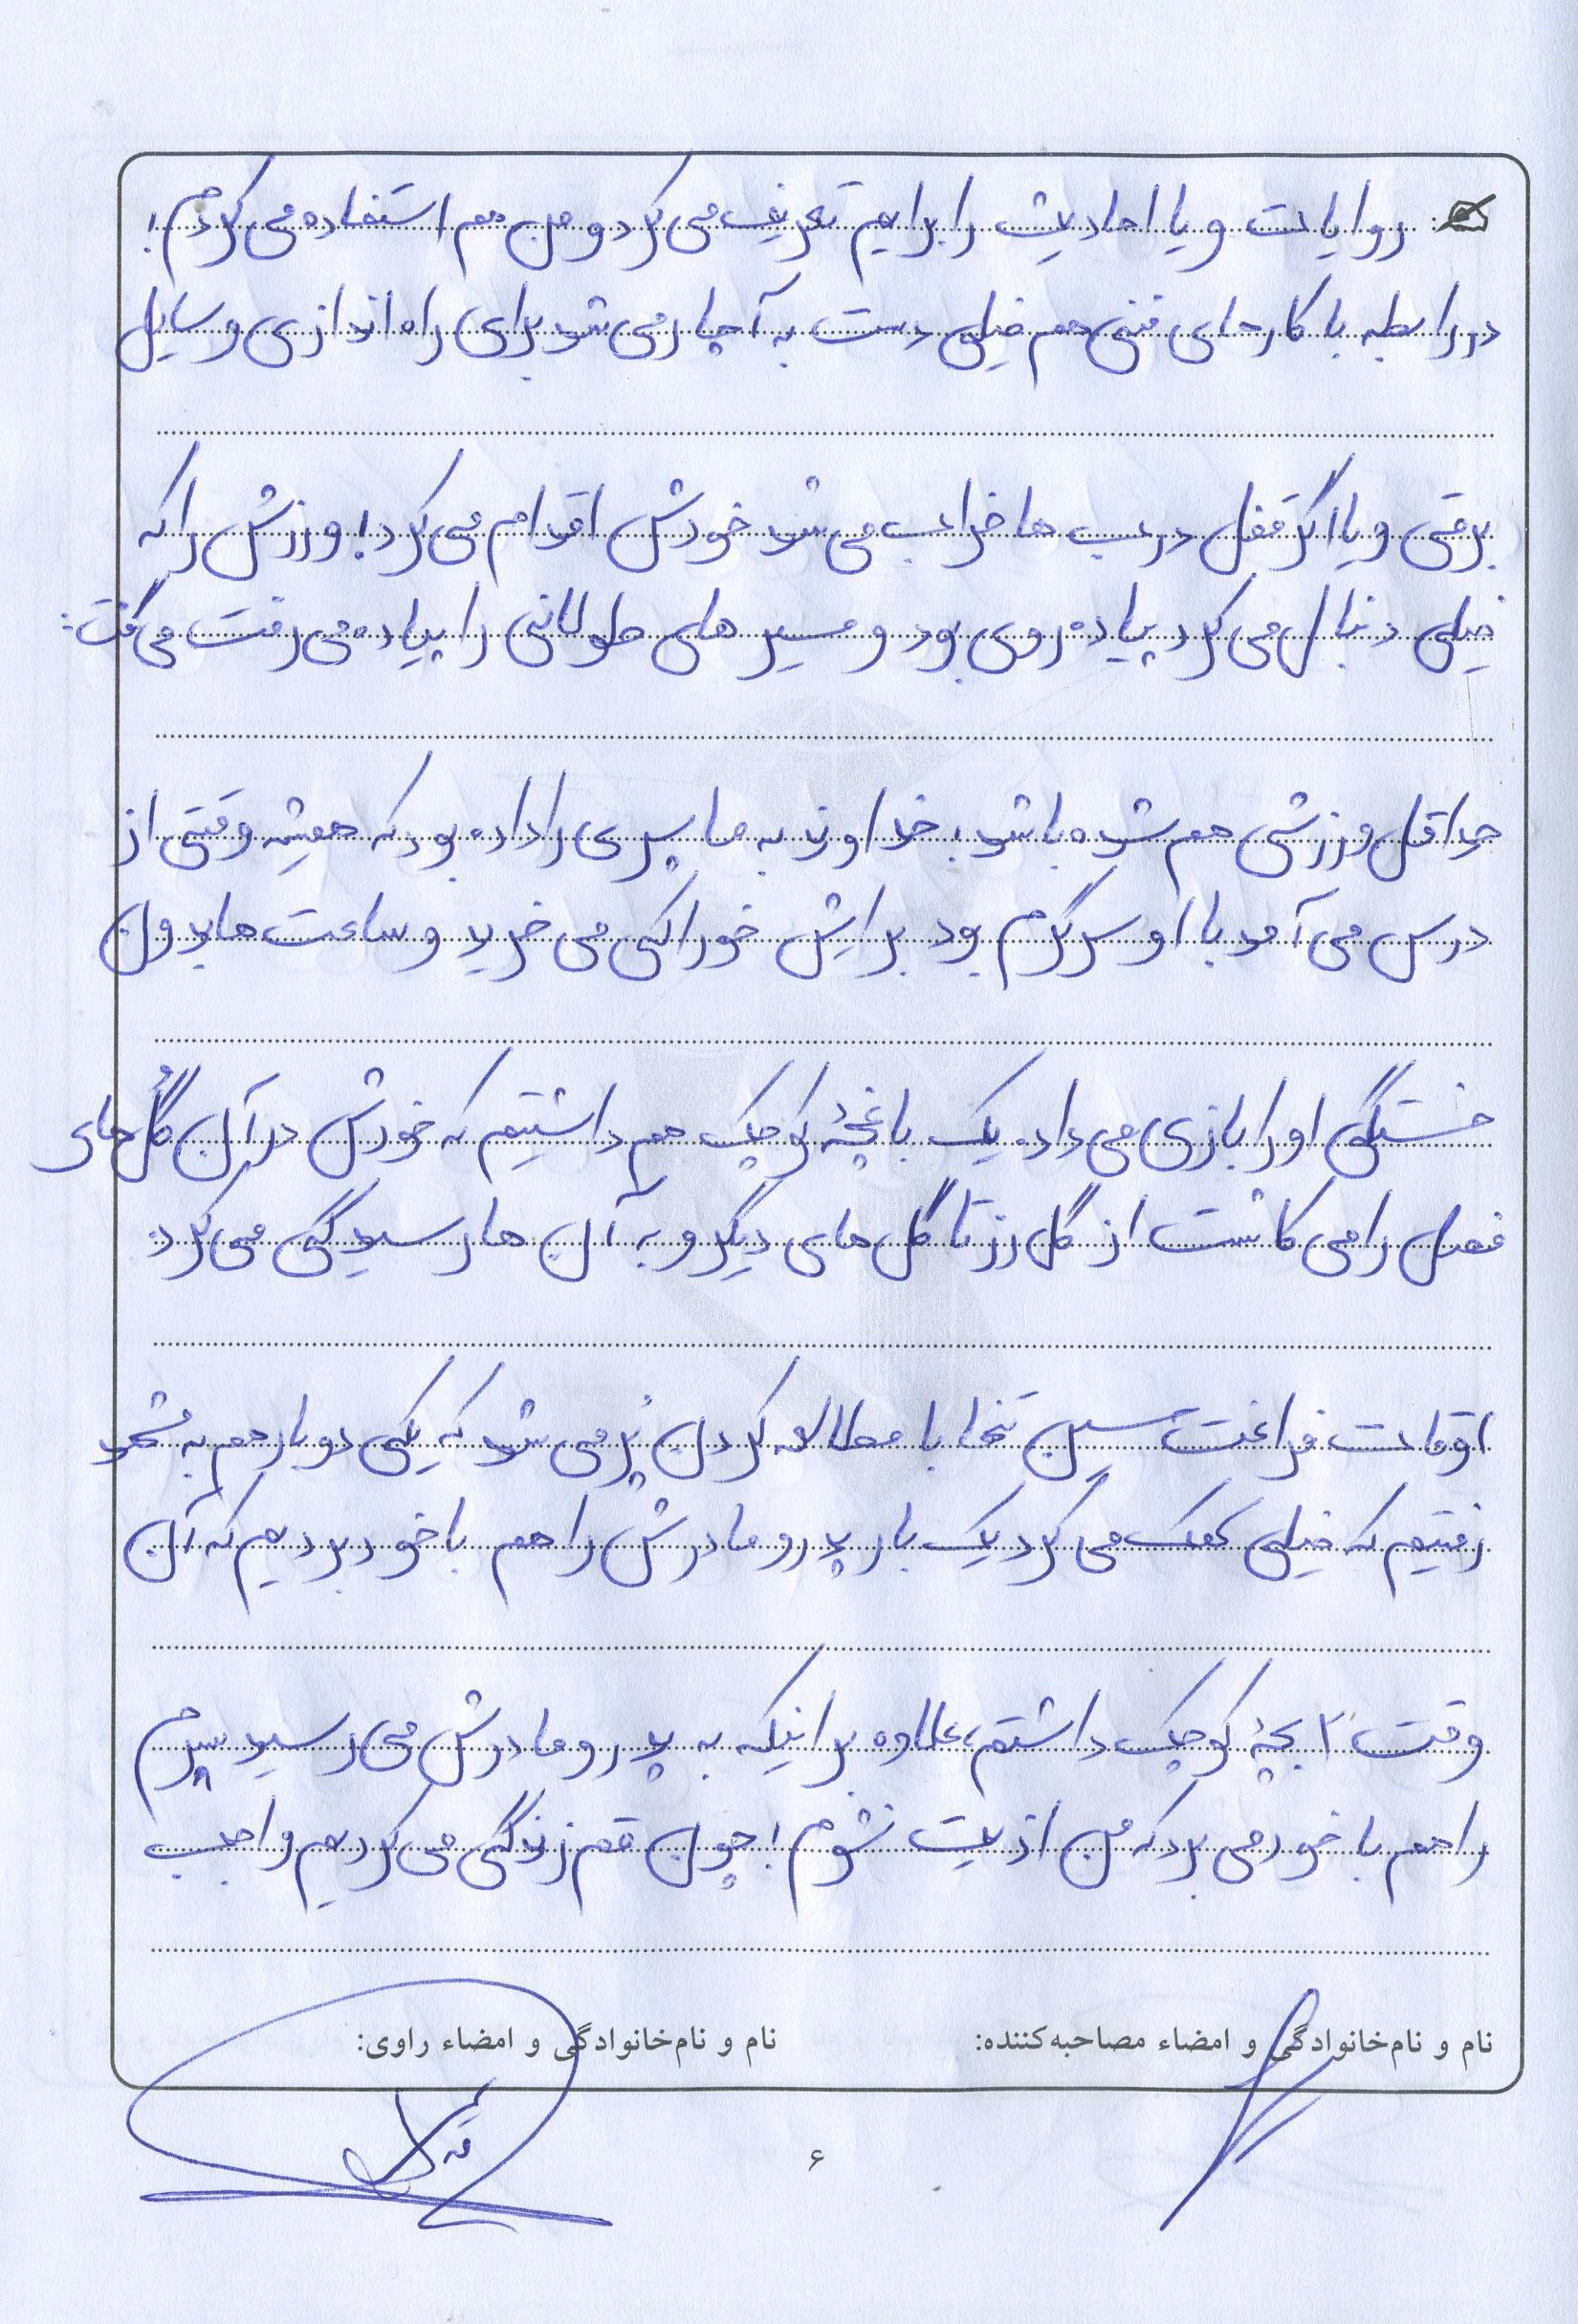 روایات و یا احادیث را برایم تعریف می کرد و من هم استفاده می کردم!
در رابطه با کارهای فنی هم خیلی دست به آچار می شد برای راه اندازی وسایل
برقی و یا اگر قفل درب ها خراب می شد خودش اقدام می کرد! ورزش را که
خیلی دنبال می کرد پیاده روی بود و مسیر های طولانی را پیاده می رفت می گفت:
حداقل ورزشی هم شده باشد! خداوند به ما پسری را داده بود که همیشه وقتی از
درس می آمد با او سرگرم بود برایش خوراکی می خرید و ساعت ها بدون
خستگی او را بازی می داد. یک باغچهٔ کوچک هم داشتیم که خودش در آن گُل های
فصل را می کاشت از گل رز تا گل های دیگر و به آن ها رسیدگی می کرد
اوقات فراغت تنها با مطالعه کردن پُر می شد که یکی دو بار هم به مشهد
رفتیم که خیلی کمک می کرد یک بار پدر و مادرش را هم با خود بردیم که آن
وقت ۲ بچهٔ کوچک داشتم، علاوه بر اینکه به پدر و مادرش می رسید پسرم
را هم با خود می برد که من اذیت نشوم! چون قم زندگی می کردیم واجب
نام و نام‌خانوادگی و امضاء مصاحبه‌کننده:
نام و نام‌خانوادگی و امضاء راوی:
۶